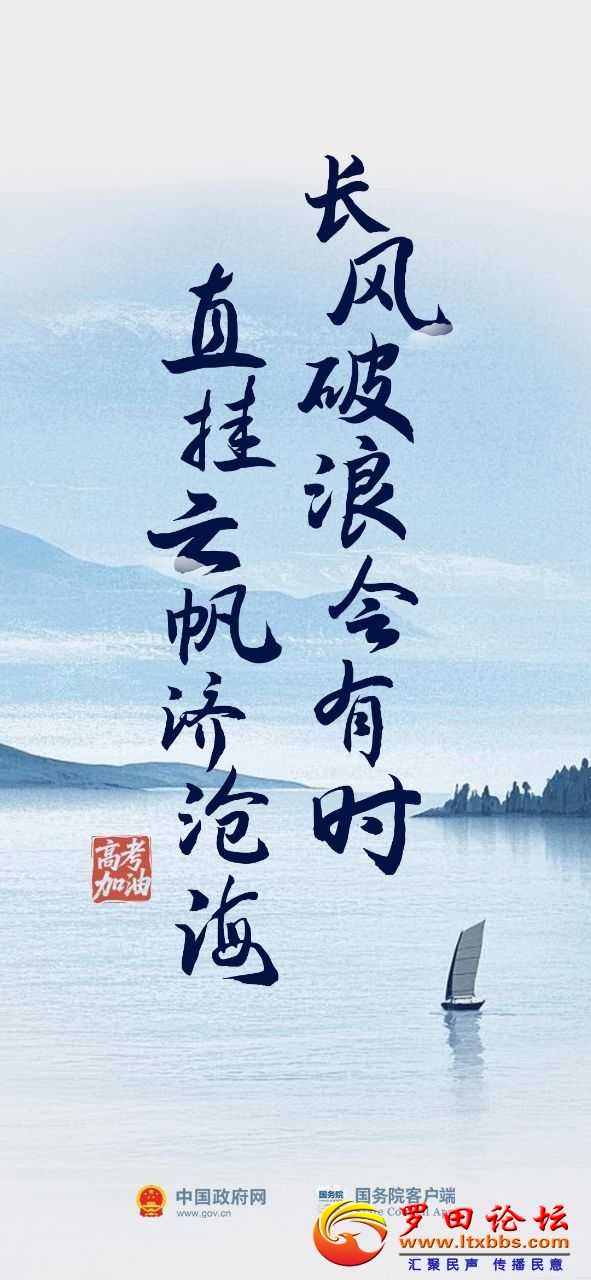 长风破浪会有时
直挂云帆济沧海
高考
加油
中国政府网
www.gov.cn
国务院
国务院客户端
罗田论坛
www.ltxbbs.com
汇聚民声 传播民意